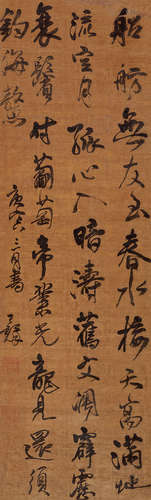 船舫無友春水接天高滿地
流空月孤心入暗濤舊文霹靂
衰鬢付葡萄帝業光龍見還須
釣海鼇 庚寅三月書